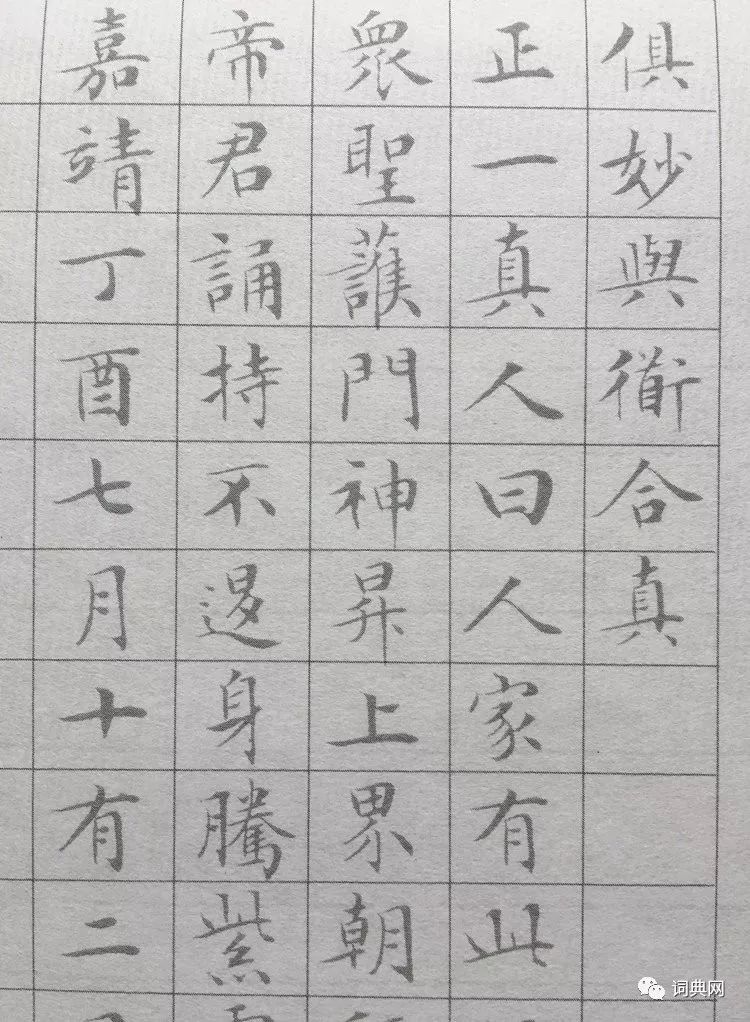 俱妙與衜合真
正一真人曰人家有此
眾聖護門神昇上界朝
帝君誦持不退身騰紫
嘉靖丁酉七月十有二
词典网